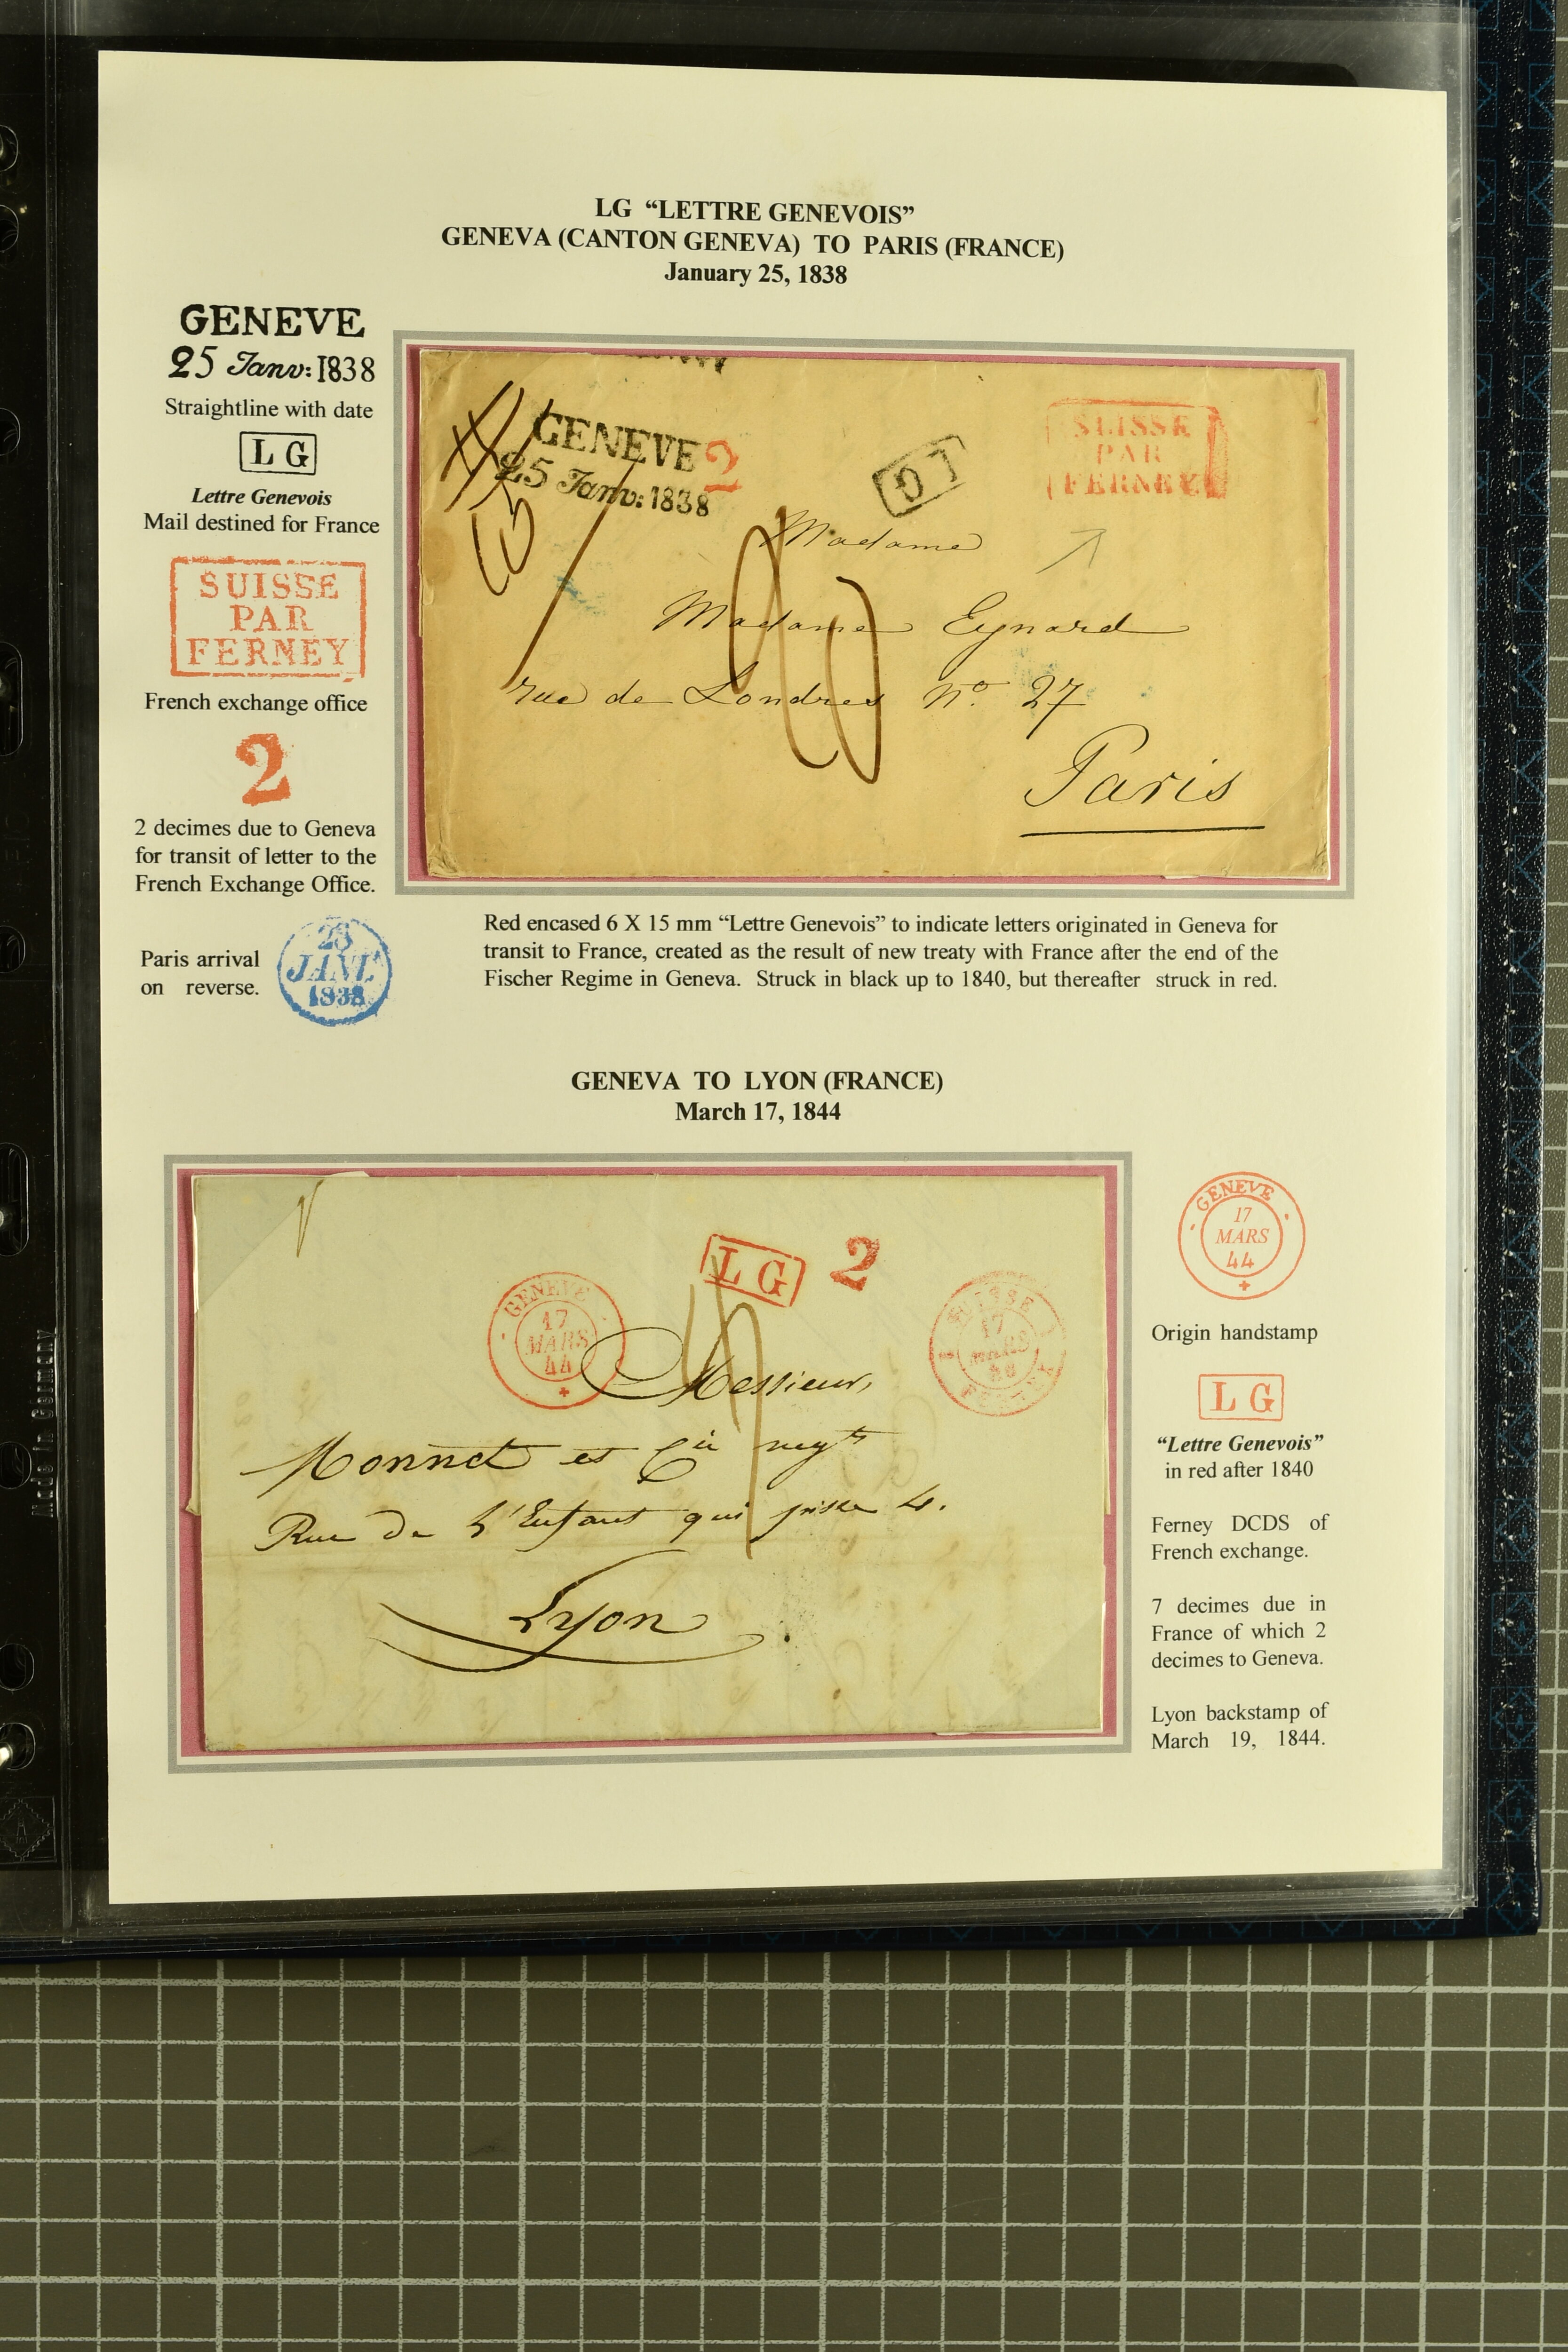 LG “LETTRE GENEVOIS”
GENEVA (CANTON GENEVA) TO PARIS (FRANCE)
January 25, 1838
GENEVE
25 Janv: 1838
Straightline with date
L G
Lettre Genevois
Mail destined for France
SUISSE
PAR
FERNEY
French exchange office
2
2 decimes due to Geneva
for transit of letter to the
French Exchange Office.
Paris arrival
on reverse.
JANV
1838
GENEVE
25 Janv: 1838
2
L G
SUISSE
PAR
FERNEY
Madame
Madame Eynard
rue de Londres No. 27
Paris
Red encased 6 X 15 mm “Lettre Genevois” to indicate letters originated in Geneva for
transit to France, created as the result of new treaty with France after the end of the
Fischer Regime in Geneva. Struck in black up to 1840, but thereafter struck in red.
GENEVA TO LYON (FRANCE)
March 17, 1844
L G
2
GENEVE
17
MARS
44
SUISSE
17
MARS
Messieurs
Monnet et Cie negts
Rue de L'Enfant qui pisse 4.
Lyon
GENEVE
17
MARS
44
Origin handstamp
L G
“Lettre Genevois”
in red after 1840
Ferney DCDS of
French exchange.
7 decimes due in
France of which 2
decimes to Geneva.
Lyon backstamp of
March 19, 1844.
Made in Germany